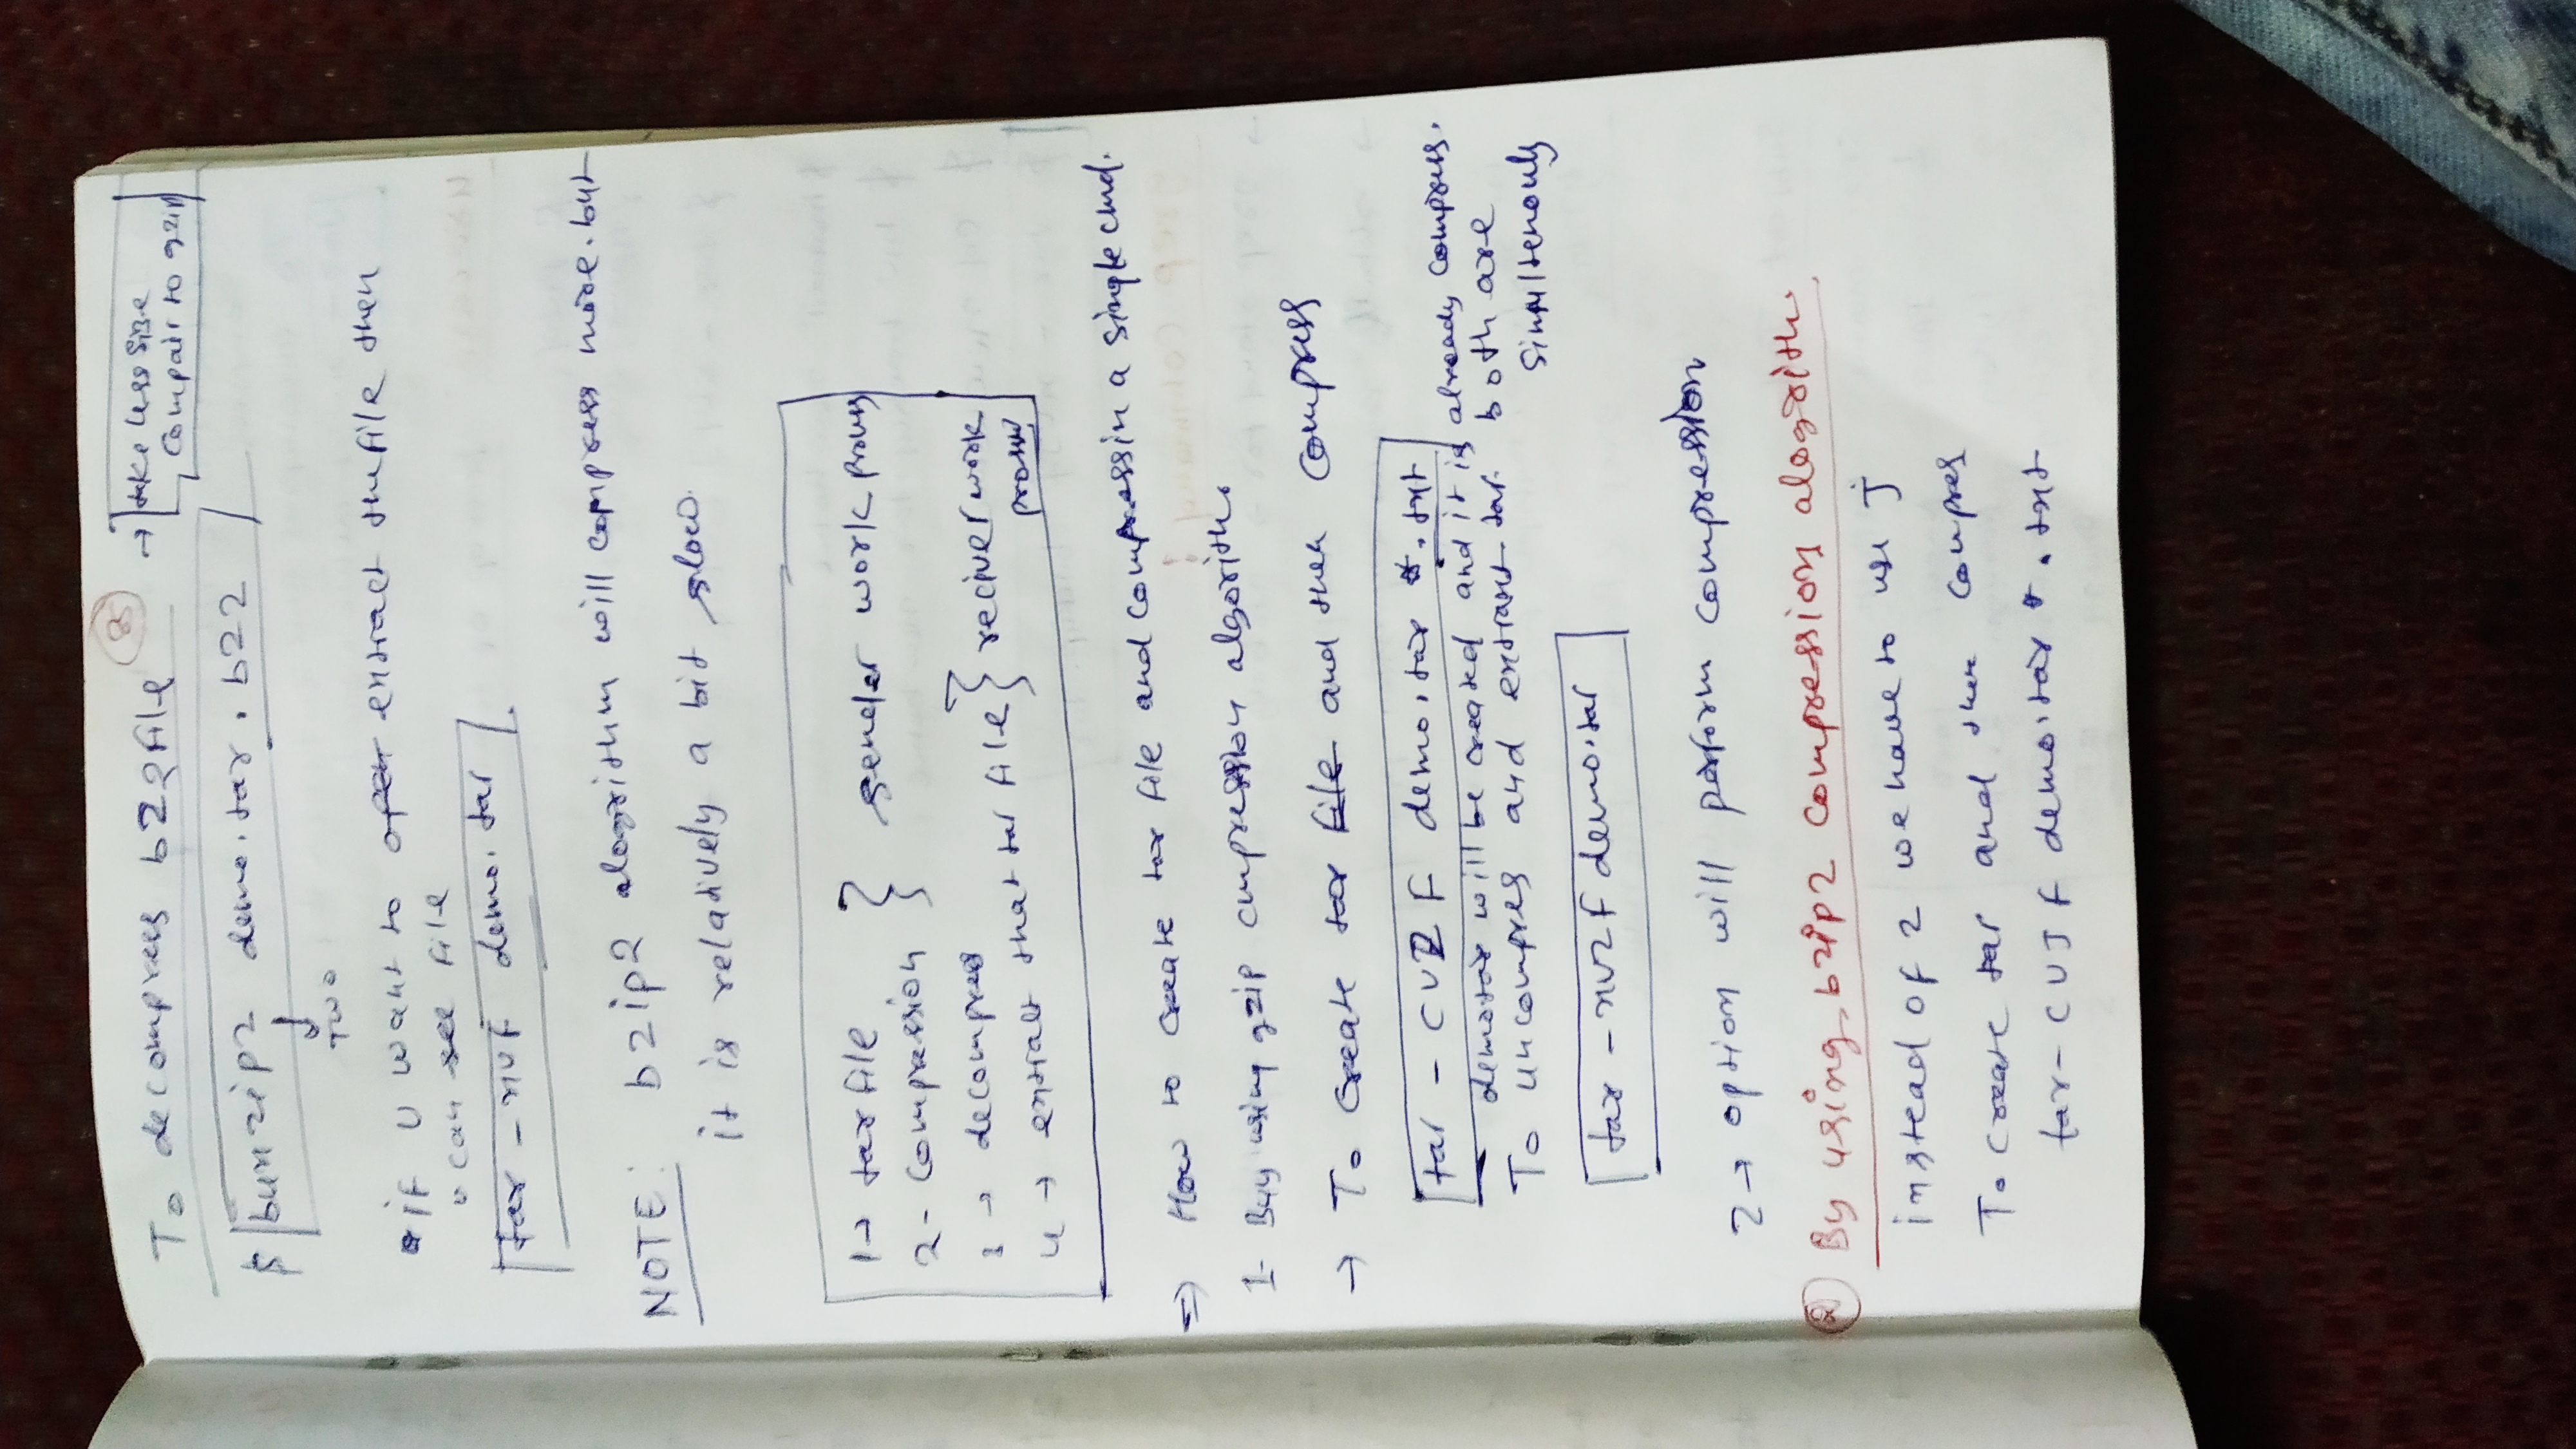 To decompress bz2 file → take less size
compair to gzip
$ bunzip2 demo.tar.bz2
Two
if u want to open extract the file then
u can see file
tar -xvf demo.tar
NOTE: bzip2 alogrithm will compress more. but
it is reladively a bit slow.
1→ tar file
2- Compression } sender work process
3 → decompress
4 → extralt that tar file } reciver work
process
⇒ How to create tar file and compressin a single cmd.
1- Buy using gzip cmpression algorithm
→ To Create tar file and then compress
tar -cvzf demo.tar *.txt
demo.tar will be created and it is already compress.
To uncompres and extract tar. both are
simultenously
tar -xvzf demo.tar
z → option will perform compression
② By using bzip2 compression alogrith.
instead of z we have to use j
To create tar and then compres
tar -cvjf demo.tar *.txt